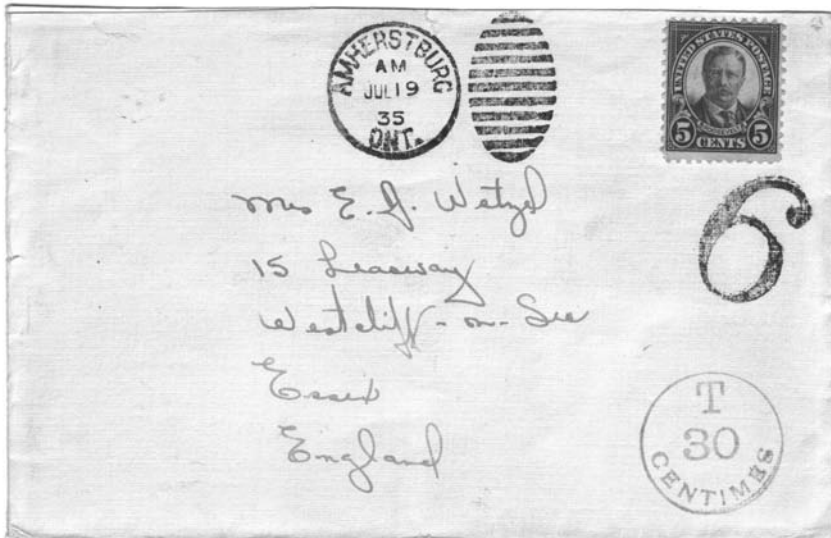 AMHERSTBURG
AM
JUL 19
35
ONT.
UNITED STATES POSTAGE
ROOSEVELT
5 CENTS 5
6
Mrs E. J. Wetzel
15 Leasway
Westcliff-on-Sea
Essex
England
T
30
CENTIMES